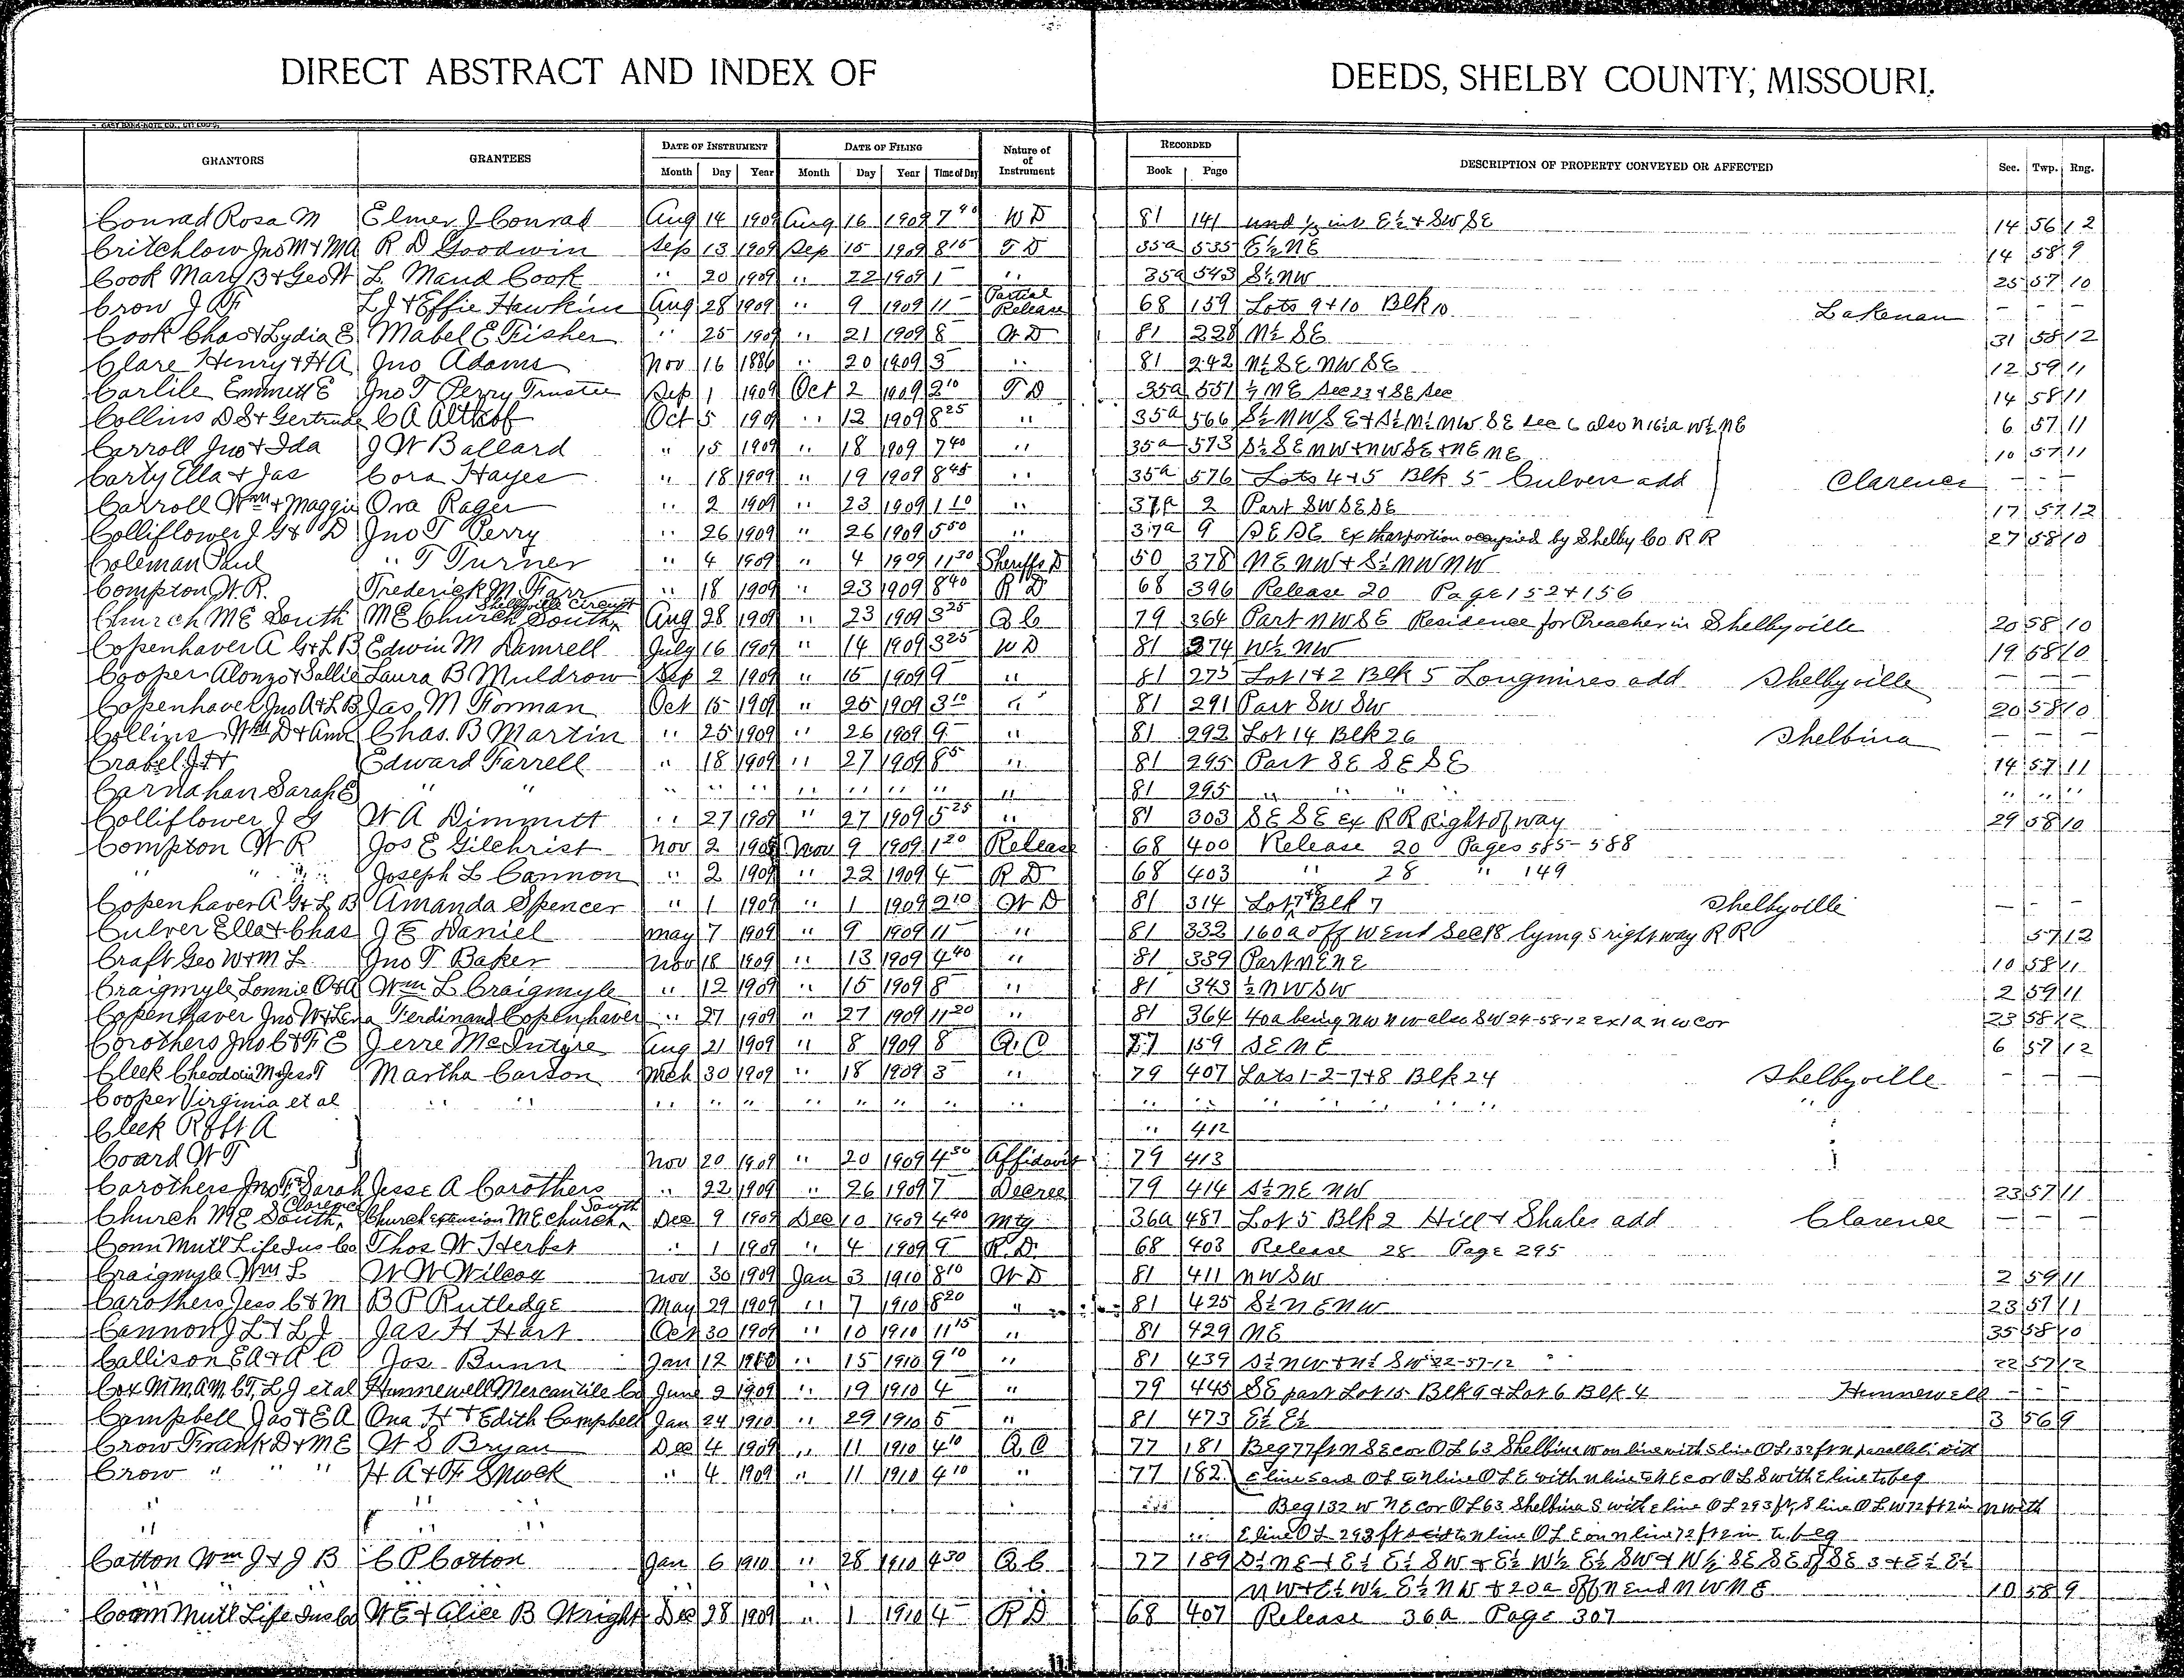 DIRECT ABSTRACT AND INDEX OF DEEDS, SHELBY COUNTY, MISSOURI.
GRANTORS GRANTEES DATE OF INSTRUMENT DATE OF FILING Nature of of Instrument RECORDED DESCRIPTION OF PROPERTY CONVEYED OR AFFECTED Sec. Twp. Rng.
Month Day Year Month Day Year Time of Day Book Page
Conrad Rosa M Elmer J Conrad Aug 14 1909 Aug 16 1909 7 40 WD 81 141 und 1/3 int E½ + SW SE 14 56 12
Critchlow Jno M & MA R D Goodwin Sep 13 1909 Sep 15 1909 8 15 TD 35a 535 E½ NE 14 58 9
Cook Mary B & Geo H L. Maud Cook " 20 1909 " 22 1909 1 - " 35a 543 S½ NW 25 57 10
Crow J W L J & Effie Hawkins Aug 28 1909 " 9 1909 11 - Partial Release 68 159 Lots 9+10 Blk 10 Lakenan - - -
Cook Chas & Lydia E Mabel E Fisher " 25 1909 " 21 1909 8 WD 81 228 N½ SE 31 58 12
Clare Henry & HA Jno Adams Nov 16 1886 " 20 1909 3 - " 81 242 N½ SE NW SE 12 59 11
Carlile Emmett E Jno T Perry Trustee Sep 1 1909 Oct 2 1909 2 10 TD 35a 551 ½ NE Sec 23 & SE Sec 14 58 11
Collins D S & Gertrude C A Altkof Oct 5 1909 " 12 1909 8 25 " 35a 566 S½ NW SE & S½ N½ NW SE Sec 6 also N 16½a W½ NE 6 57 11
Carroll Jno & Ida J W Ballard " 15 1909 " 18 1909 7 40 " 35a 573 S½ SE NW + NW SE + NE NE 10 57 11
Carty Ella & Jas Cora Hayes " 18 1909 " 19 1909 8 45 " 35a 576 Lots 4+5 Blk 5 Culvers add Clarence - - -
Carroll Wm & Maggie Ora Rager " 2 1909 " 23 1909 1 10 " 37a 2 Part SW SE SE 17 57 12
Colliflower J G & D Jno T Perry " 26 1909 " 26 1909 5 50 " 37a 9 SE SE Ex that portion occupied by Shelby Co R R 27 58 10
Coleman Paul " T Turner " 4 1909 " 4 1909 11 30 Sheriffs D 50 378 NE NW & S½ NW NW
Compton W. R. Frederick M Farr " 18 1909 " 23 1909 8 40 RD 68 396 Release 20 Page 152 & 156
Church ME South ME Church South Shelbyville Circuit Aug 28 1909 " 23 1909 3 25 QC 79 364 Part NW SE Residence for Preacher in Shelbyville 20 58 10
Copenhaver A G & L B Edwin M Damrell July 16 1909 " 14 1909 3 25 WD 81 274 W½ NW 19 58 10
Cooper Alonzo & Sallie Laura B Muldrow Sep 2 1909 " 15 1909 9 - " 81 275 Lot 1+2 Blk 5 Longmires add Shelbyville - - -
Copenhaver Jno A & L B Jas. M Forman Oct 15 1909 " 25 1909 3 10 " 81 291 Part SW SW 20 58 10
Collins Wm D & Ann Chas. B Martin " 25 1909 " 26 1909 9 - " 81 292 Lot 14 Blk 26 Shelbina - - -
Crabel J H Edward Farrell " 18 1909 " 27 1909 8 5 " 81 295 Part SE SE SE 14 57 11
Carnahan Sarah E " " " " " " " " " " 81 295 " " " " " " "
Colliflower J G W A Dimmitt " 27 1909 " 27 1909 5 25 " 81 303 SE SE Ex RR Right of way 29 58 10
Compton W R Jos E Gilchrist Nov 2 1909 Nov 9 1909 1 20 Release 68 400 Release 20 Pages 585-588
" " " Joseph L Cannon " 2 1909 " 22 1909 4 - RD 68 403 " 28 " 149
Copenhaver A G & L B Amanda Spencer " 1 1909 " 1 1909 2 10 WD 81 314 Lot 7+8 Blk 7 Shelbyville - - -
Culver Ella & Chas J E Daniel May 7 1909 " 9 1909 11 - " 81 332 160a off W end Sec 18 lying S right way RR 57 12
Craft Geo W & M L Jno T Baker Nov 18 1909 " 13 1909 4 40 " 81 339 Part NE NE 10 58 11
Craigmyle Lonnie O & A Wm L Craigmyle " 12 1909 " 15 1909 8 " 81 343 ½ NW SW 2 59 11
Copenhaver Jno W & Lena Ferdinand Copenhaver " 27 1909 " 27 1909 11 20 " 81 364 40a being NW NW also SW 24-58-12 Ex 1a NW cor 23 58 12
Corothers Jno C & F E Jerre McIntyre Aug 21 1909 " 8 1909 8 - Q.C 77 159 SE NE 6 57 12
Cleek Cheodocia M & Jess T Martha Carson Mch 30 1909 " 18 1909 3 - " 79 407 Lots 1-2-7+8 Blk 24 Shelbyville - - -
Cooper Virginia et al " " " " " " " " " " " " " " " " "
Cleek Robt A " 412
Coard W T Nov 20 1909 " 20 1909 4 30 Affidavit 79 413
Carothers Jno F & Sarah Jesse A Carothers " 22 1909 " 26 1909 7 - Decree 79 414 S½ NE NW 23 57 11
Church ME South, Clarence Church Extension ME Church South Dec 9 1909 Dec 10 1909 4 40 Mtg 36a 487 Lot 5 Blk 2 Hill & Shales add Clarence - - -
Conn Mut'l Life Ins Co Thos W Herbst " 1 1909 " 4 1909 9 - R.D. 68 403 Release 28 Page 295
Craigmyle Wm L W W Wilcox Nov 30 1909 Jan 3 1910 8 10 WD 81 411 NW SW 2 59 11
Carothers Jess C & M B P Rutledge May 29 1909 " 7 1910 8 20 " 81 425 S½ NE NW 23 57 11
Cannon J L & L J Jas H Hart Oct 30 1909 " 10 1910 11 15 " 81 429 NE 35 58 10
Callison E A & A C Jos Bunn Jan 12 1910 " 15 1910 9 10 " 81 439 S½ NW & N½ SW 22-57-12 22 57 12
Cox M M, A M, C T, L J et al Hunnewell Mercantile Co June 2 1909 " 19 1910 4 - " 79 445 SE part Lot 15 Blk 9 & Lot 6 Blk 4 Hunnewell - - -
Campbell Jas & E A Ona H & Edith Campbell Jan 24 1910 " 29 1910 5 - " 81 473 E½ E½ 3 56 9
Crow Frank D & M E W S Bryan Dec 4 1909 " 11 1910 4 10 QC 77 181 Beg 77 ft N SE cor OL 63 Shelbina W on line with S line OL 132 ft N parallell with
Crow " " " H A & F Snock " 4 1909 " 11 1910 4 10 " 77 182 E line said OL to N line OL E with N line to NE cor OL S with E line to beg
" " " Beg 132 W NE cor OL 63 Shelbina S with E line OL 293 ft S line OL W 72 ft 2 in N with
" " " E line OL 293 ft to N line OL E on N line 72 ft 2 in to beg
Cotton Wm J & J B C P Cotton Jan 6 1910 " 28 1910 4 30 QC 77 189 S½ NE & E½ E½ SW & E½ W½ E½ SW & W½ SE SE of SE 3 & E½ E½
" " " " " " NW & E½ W½ E½ NW & 20a off N end NW NE 10 58 9
Conn Mut'l Life Ins Co W E & Alice B Wright Dec 28 1909 " 1 1910 4 - RD 68 407 Release 36a Page 307